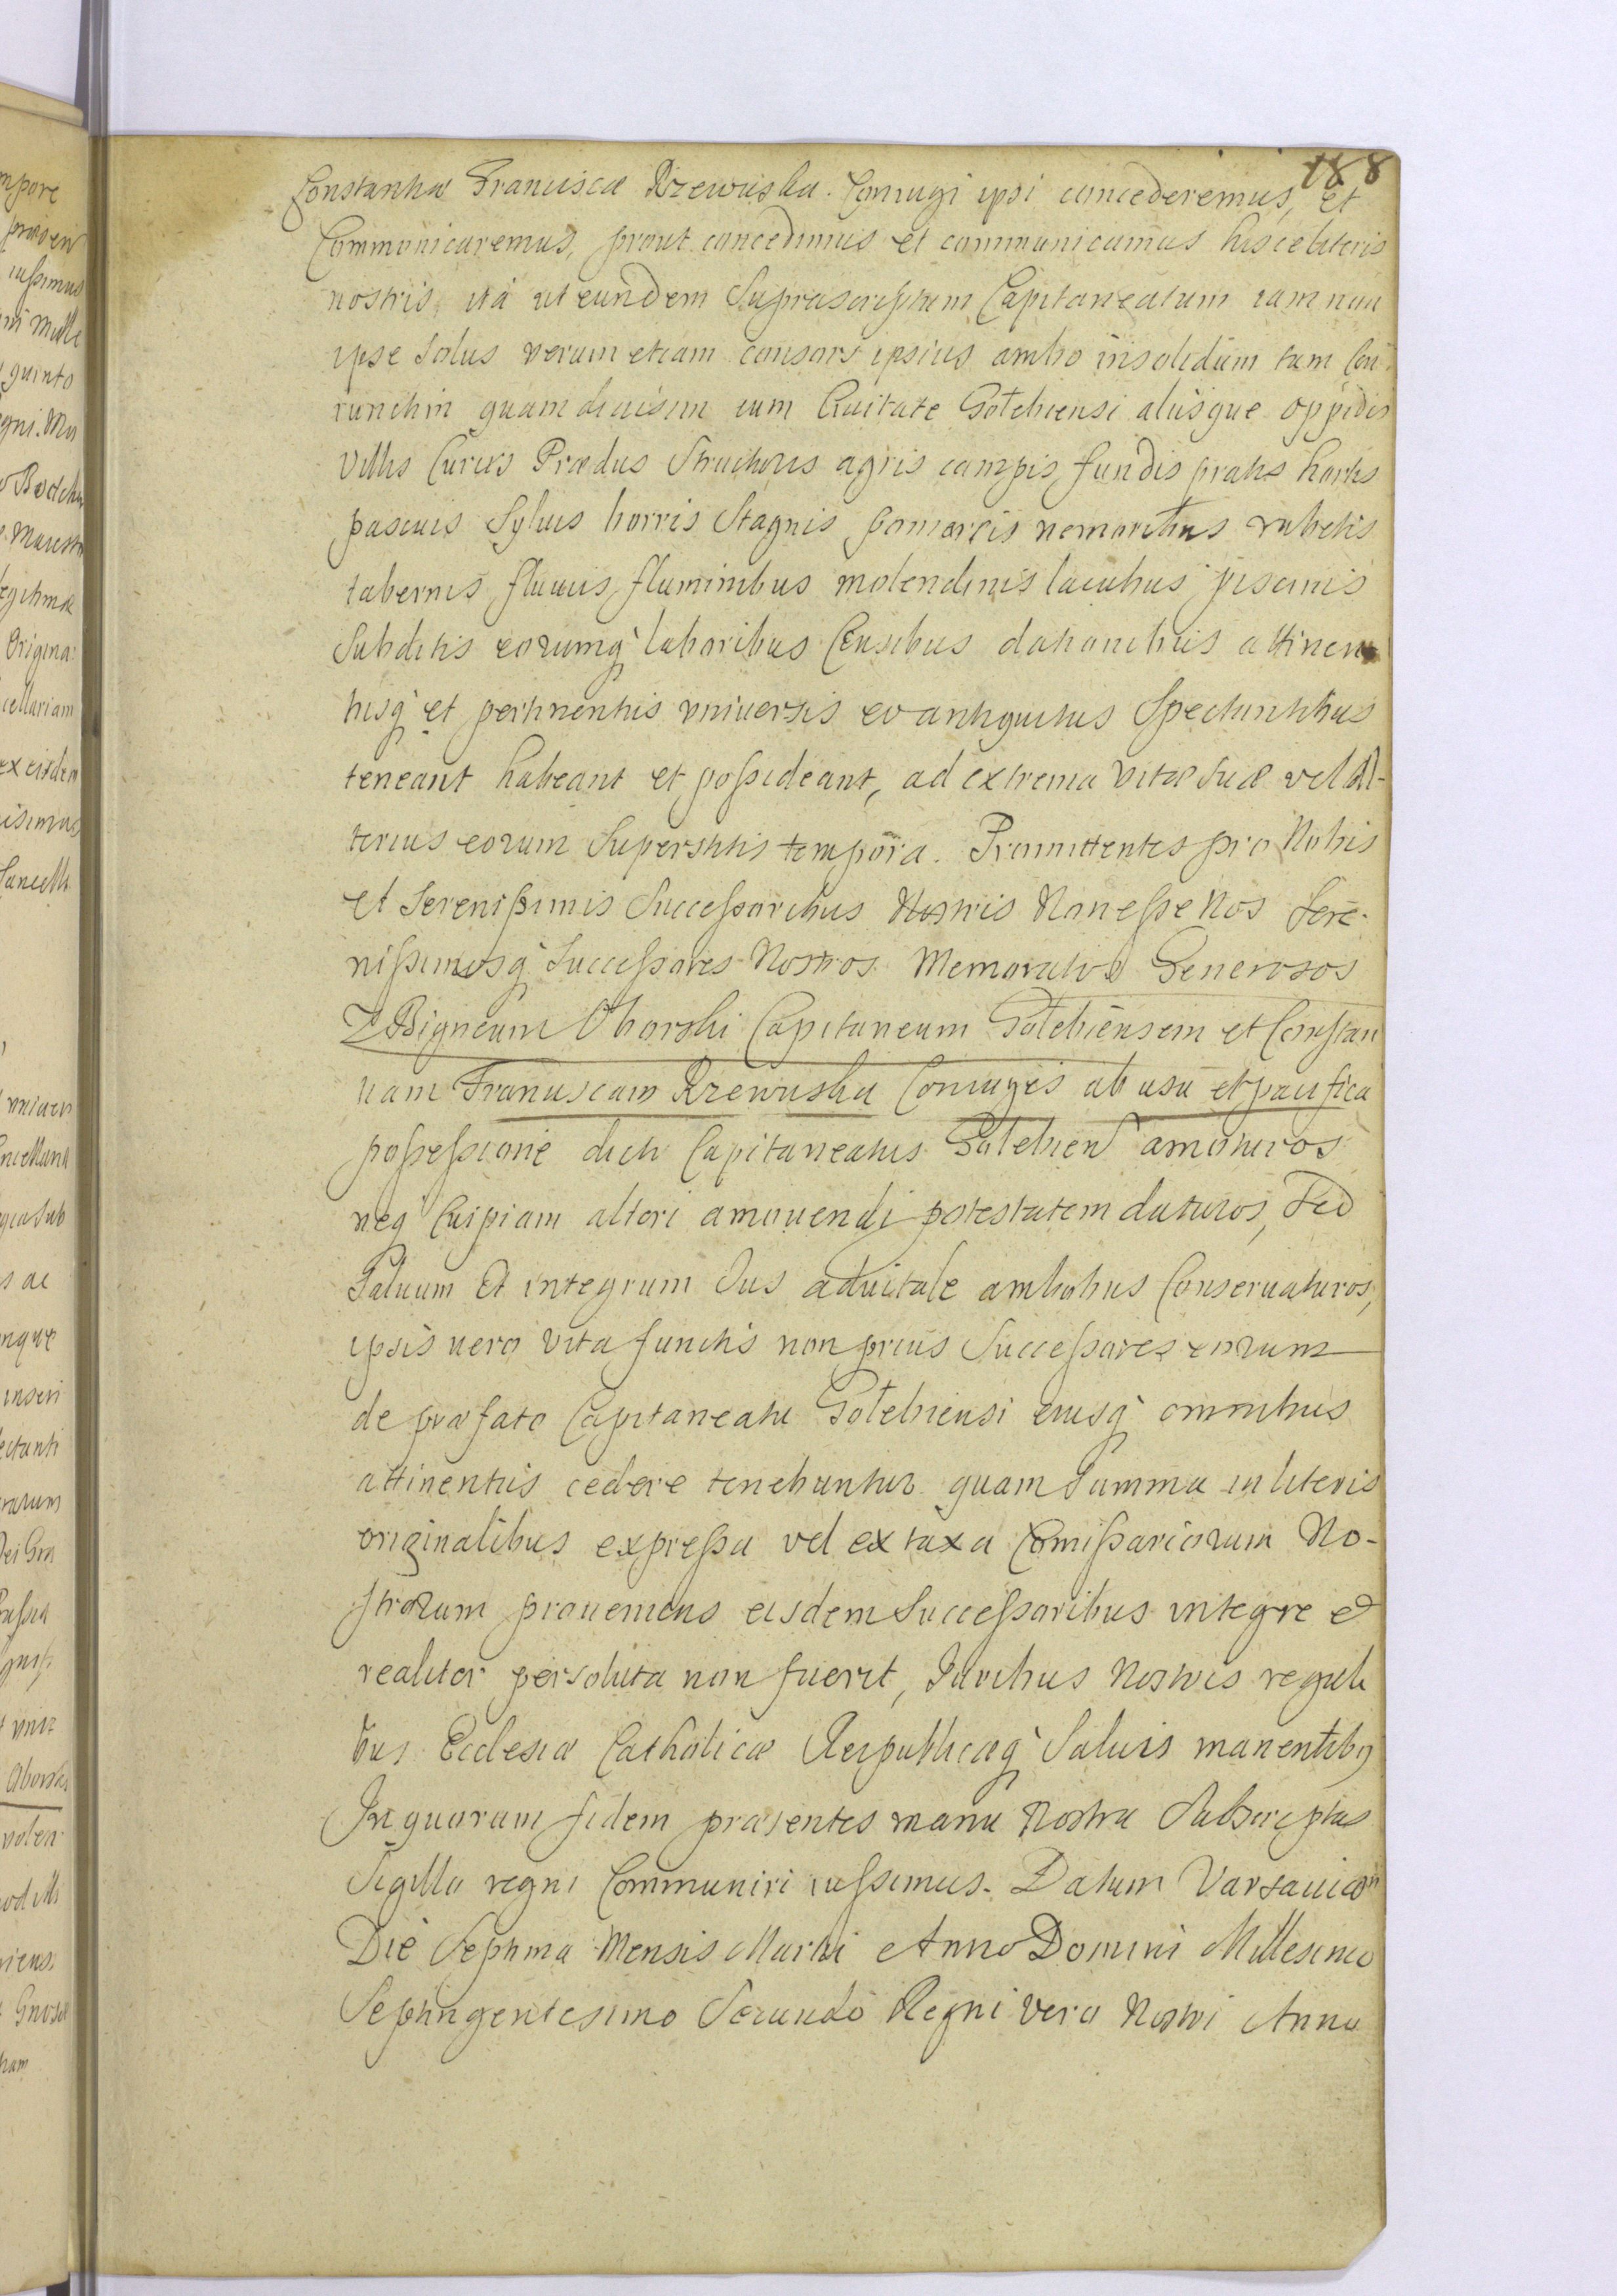 188
Constantiæ Franciscæ Rzewuska. Coniugi ipsi concederemus, et
Communicaremus, prout concedimus et communicamus hisce literis
nostris, ità ut eundem Suprascriptum Capitaneatum iam non
ipse Solus verum etiam consors ipsius ambo insolidum tam Con-
iunctim quam diuisim cum Ciuitate Gołebiensi alÿsque oppidis
Villis Curÿs Prædÿs Structuris agris campis, fundis pratis hortis
pascuis Syluis borris Stagnis pomarÿs nemoribus rubetis
tabernis fluuÿs, fluminibus molendinis lacubus, piscinis
Subditis eorumq̀ laboribus Censibus dationibus attinen
tÿsq̀ et pertinentÿs vniuersis eo antiquitus Spectantibus
teneant habeant et poßideant, ad extrema vitæ suæ vel Al-
terius eorum Superstitis tempora. Promittentes pro Nobis
et Sereniſsimis Succeſsoribus Nostris Non eſse Nos Sere-
niſsimosq̀ Succeſsores Nostros Memoratos Generosos
ZBigneum Oborski Capitaneum Gołebiensem et Constan
tiam Franciscam Rzewuska Coniuges ab usu et pacifica
poſseſsione dicti Capitaneatus Gołebien amoturos
neq̀ Cuipiam alteri amouendi potestatem daturos, Sed
Saluum Et integrum Jus aduitale ambobus Conseruaturos,
ipsis vero vita functis non prius Succeſsores eorum
de præfato Capitaneatu Gołebiensi eiusq̀ omnibus
attinentÿs cedere tenebuntur quam Summa in literis
originalibus expreſsa vel ex taxa Comiſsariorum No-
strorum proueniens eisdem Succeſsoribus integre et
realiter persoluta non fuerit, Juribus Nostris regali
bus Ecclesiæ Catholicæ Reipublicæq̀ Saluis manentibꝰ
In quorum fidem præsentes manu Nostra Subscriptas
Sigillo regni Communiri iuſsimus. Datum Varsauiæ
Die Septima Mensis Martii Anno Domini Millesimo
Septingentesimo Secundo Regni vero Nostri Anno